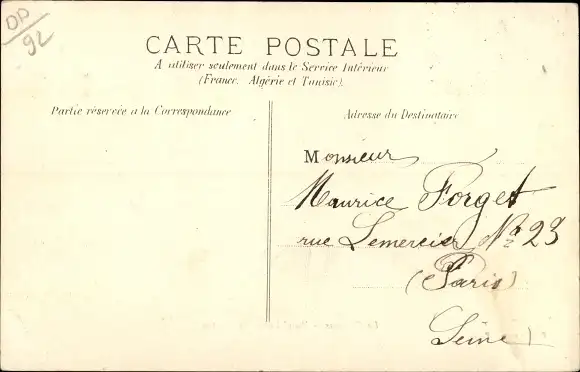 OD
92
CARTE POSTALE
A utiliser seulement dans le Service Intérieur
(France, Algérie et Tunisie).
Partie réservée a la Correspondance
Adresse du Destinataire
Monsieur
Maurice Forget
rue Lemercier No 23
(Paris)
Seine)